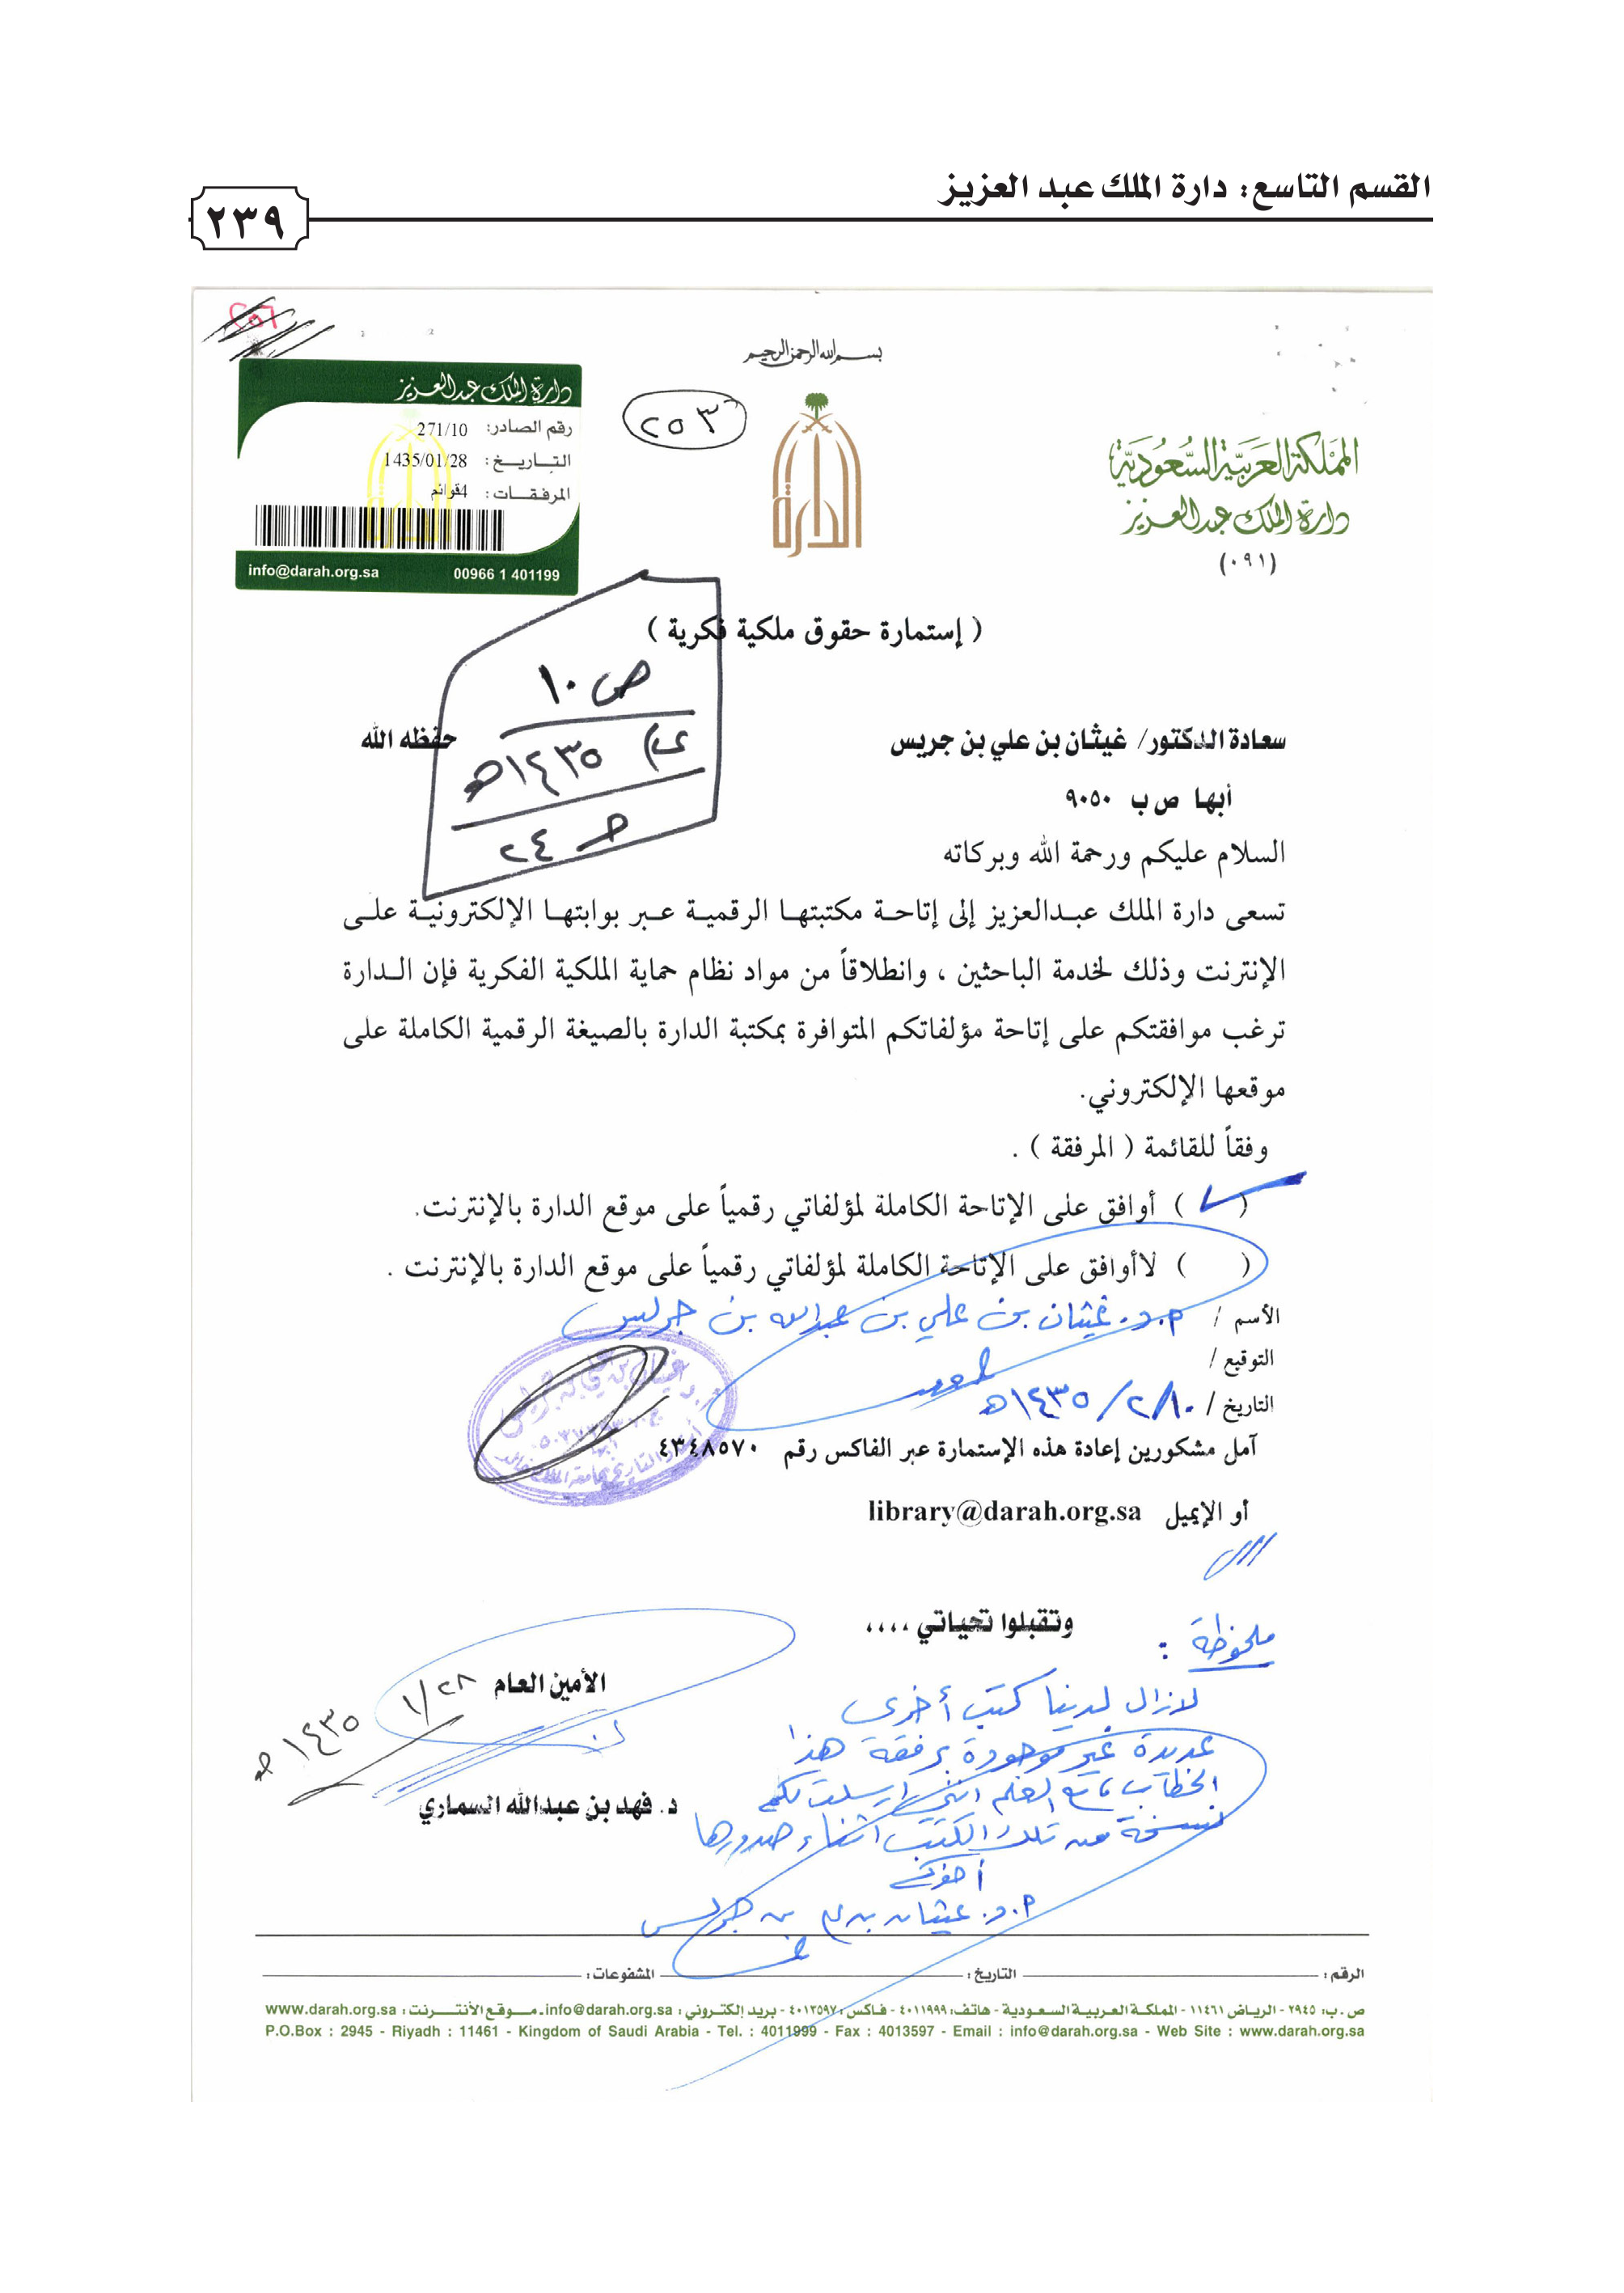 القسم التاسع: دارة الملك عبد العزيز
٢٣٩
بسم الله الرحمن الرحيم
المملكة العربية السعودية
دارة الملك عبدالعزيز
(٠٩١)
٢٥٣
دارة الملك عبدالعزيز
رقم الصادر: 271/10
التـاريـخ: 1435/01/28
المرفقـات: 4قوائم
info@darah.org.sa 00966 1 401199
( إستمارة حقوق ملكية فكرية )
ص ١٠
١٤٣٥هـ
حـ ٢٤
سعادة الدكتور/ غيثان بن علي بن جريس حفظه الله
أبها ص ب ٩٠٥٠
السلام عليكم ورحمة الله وبركاته
تسعى دارة الملك عبدالعزيز إلى إتاحة مكتبتها الرقمية عبر بوابتها الإلكترونية على
الإنترنت وذلك لخدمة الباحثين ، وانطلاقاً من مواد نظام حماية الملكية الفكرية فإن الدارة
ترغب موافقتكم على إتاحة مؤلفاتكم المتوافرة بمكتبة الدارة بالصيغة الرقمية الكاملة على
موقعها الإلكتروني.
وفقاً للقائمة ( المرفقة ) .
( ✓ ) أوافق على الإتاحة الكاملة لمؤلفاتي رقمياً على موقع الدارة بالإنترنت.
( ) لاأوافق على الإتاحة الكاملة لمؤلفاتي رقمياً على موقع الدارة بالإنترنت .
الأسم / أ.د. غيثان بن علي بن عبدالله بن جريس
التوقيع /
التاريخ / ١٠/٢/١٤٣٥هـ
آمل مشكورين إعادة هذه الإستمارة عبر الفاكس رقم ٤٣٤٨٥٧٠
أو الإيميل library@darah.org.sa
وتقبلوا تحياتي ،،،،
ملحوظة :
لازال لدينا كتب أخرى
عديدة غير موجودة برفقة هذا
الخطاب مع العلم انني ارسلت لكم
نسخة من تلك الكتب اثناء صدورها
أخوكم
أ.د. غيثان بن علي بن جريس
الأمين العام
٢٨/١
١٤٣٥هـ
د. فهد بن عبدالله السماري
الرقم: التاريخ: المشفوعات:
ص.ب: ٢٩٤٥ - الرياض ١١٤٦١ - المملكة العربية السعودية - هاتف: ٤٠١١٩٩٩ - فاكس: ٤٠١٣٥٩٧ - بريد إلكتروني: info@darah.org.sa - موقع الأنترنت: www.darah.org.sa
P.O.Box : 2945 - Riyadh : 11461 - Kingdom of Saudi Arabia - Tel. : 4011999 - Fax : 4013597 - Email : info@darah.org.sa - Web Site : www.darah.org.sa